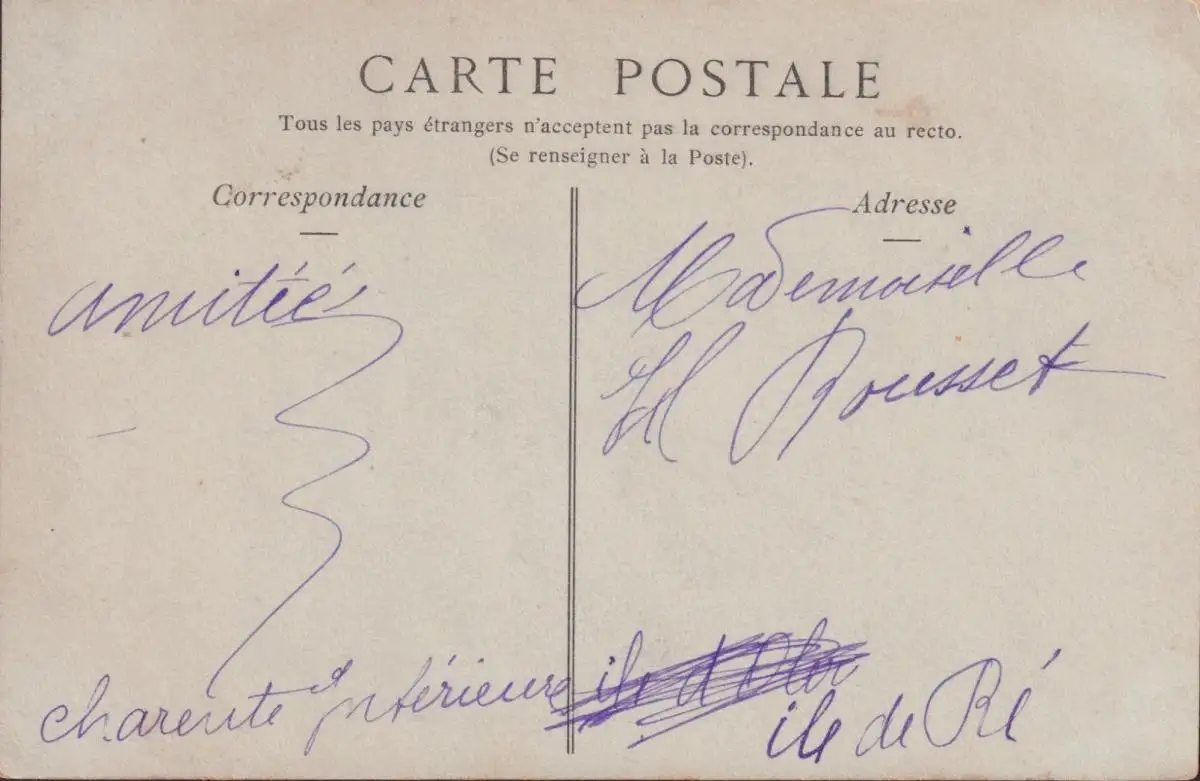 CARTE POSTALE
Tous les pays étrangers n'acceptent pas la correspondance au recto.
(Se renseigner à la Poste).
Correspondance
Adresse
amitiéé
Mademoiselle
Rousset
charente intérieure
ile de Ré